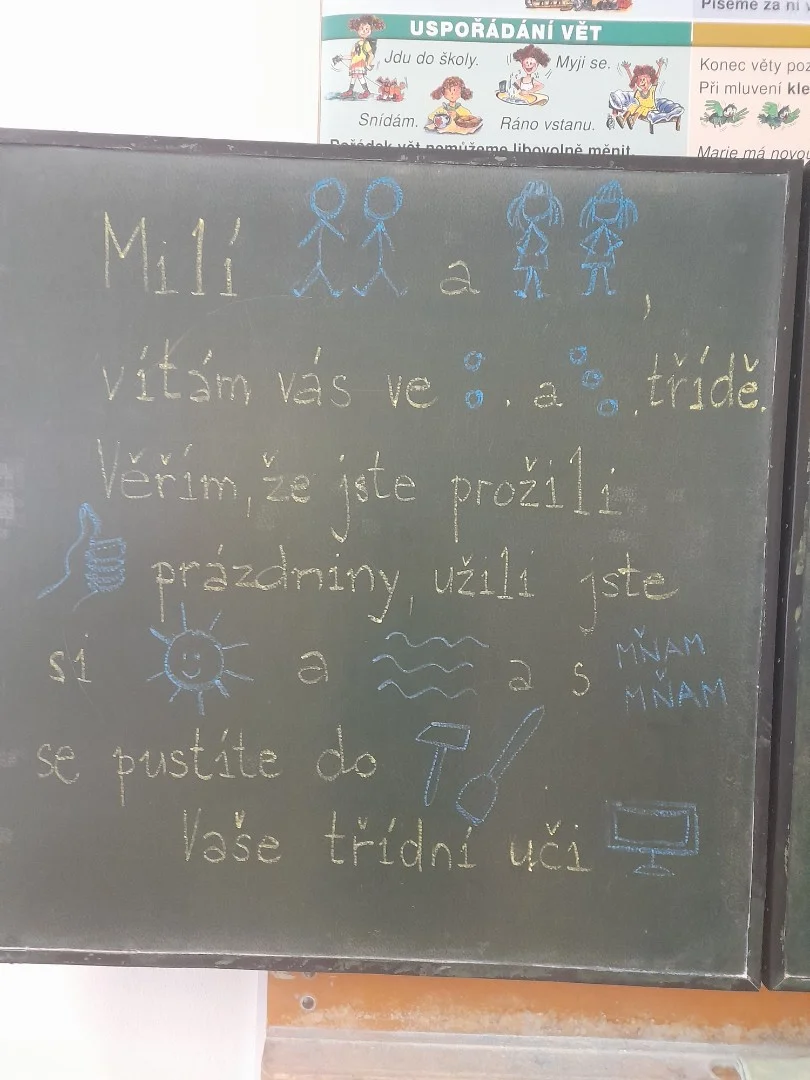 Píšeme za ní v
USPOŘÁDÁNÍ VĚT
Jdu do školy.
Myji se.
Snídám.
Ráno vstanu.
Pořádek vět nemůžeme libovolně měnit.
Konec věty
Při mluvení
Marie má novou
Milí a ,
vítám vás ve . a . třídě.
Věřím, že jste prožili
prázdniny, užili jste
si a a s MŇAM
MŇAM
se pustíte do
Vaše třídní uči